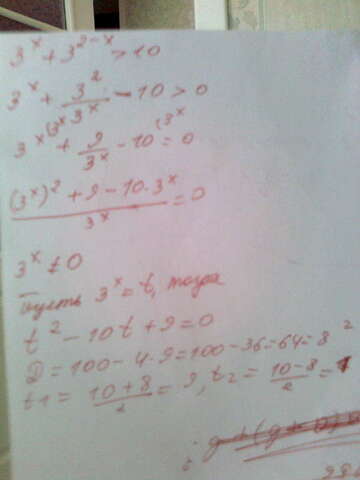 3^x + 3^(2-x) > 10
3^x + 3²/3^x - 10 > 0
3^x (3^x + 9/3^x - 10 (3^x = 0
((3^x)² + 9 - 10·3^x)/3^x = 0
3^x ≠ 0
Пусть 3^x = t, тогда
t² - 10t + 9 = 0
D = 100 - 4·9 = 100 - 36 = 64 = 8²
t1 = (10+8)/2 = 9, t2 = (10-8)/2 = 1